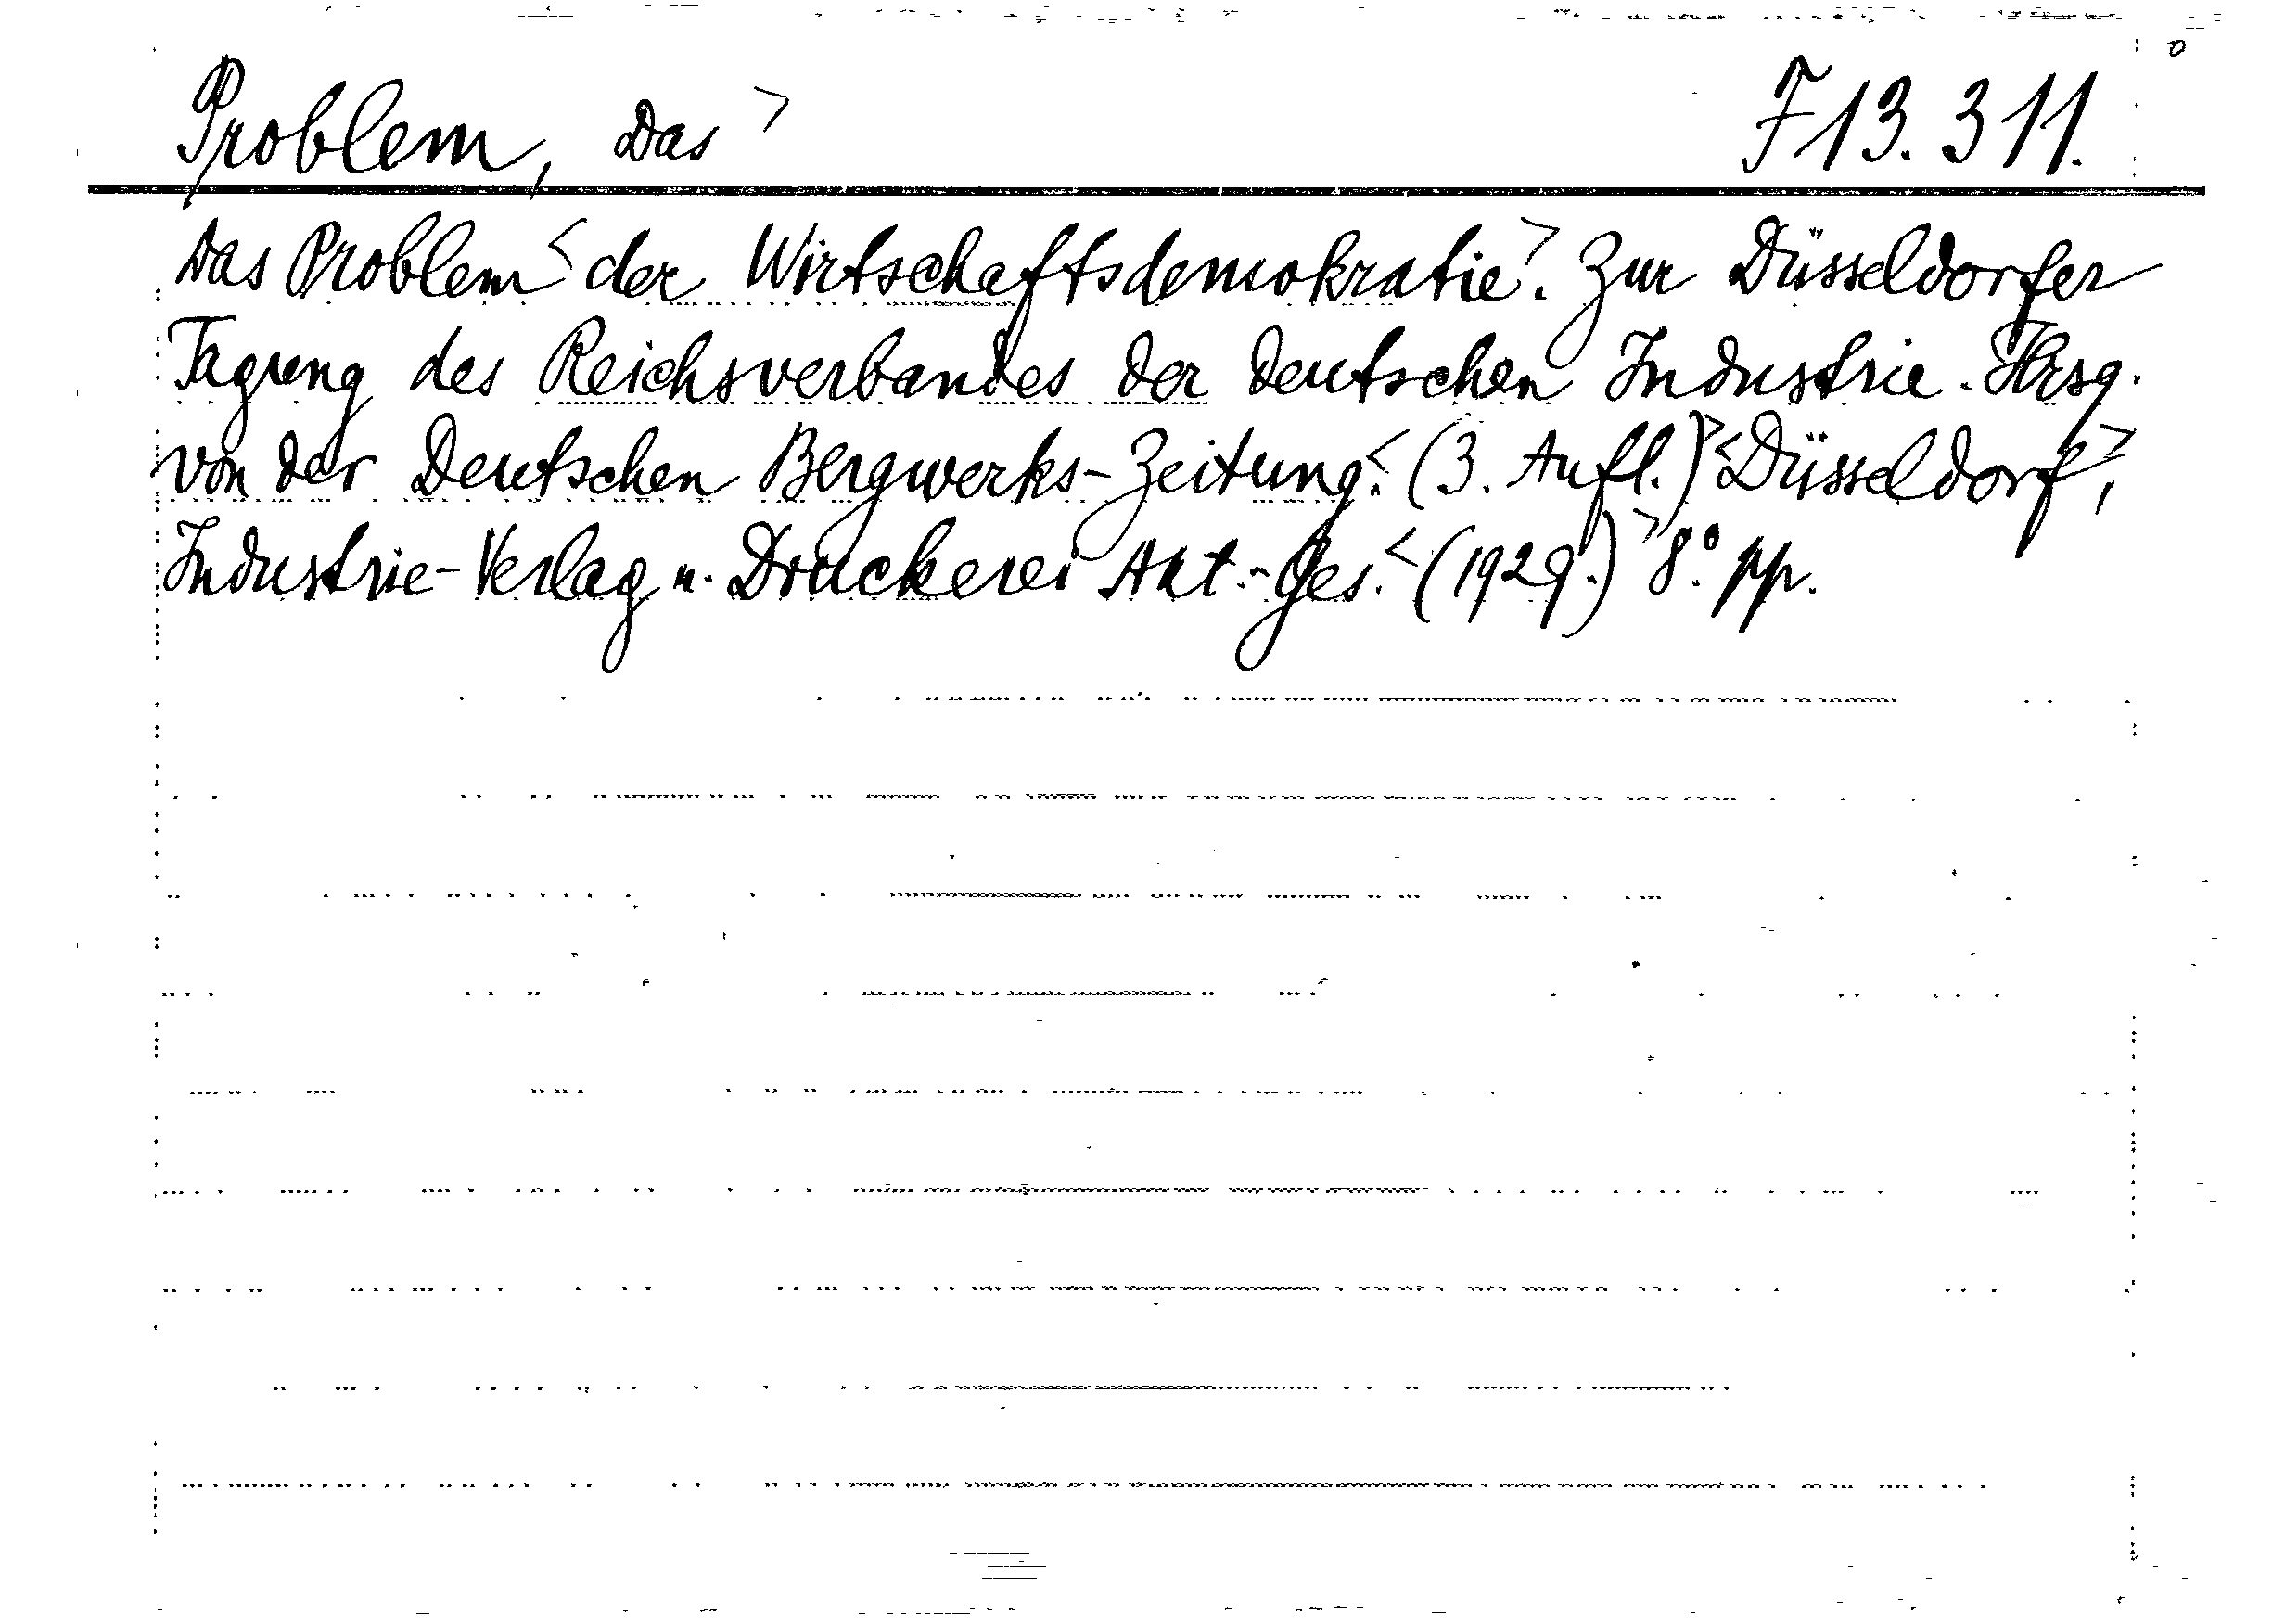 Problem, Das > F 13.311.
Das Problem < der Wirtschaftsdemokratie. > Zur Düsseldorfer
Tagung des Reichsverbandes der deutschen Industrie. Hrsg.
von der Deutschen Bergwerks-Zeitung. < (3. Aufl.) > < Düsseldorf, >
Industrie-Verlag u. Druckerei Akt.-Ges. < (1929.) > 8° pp.